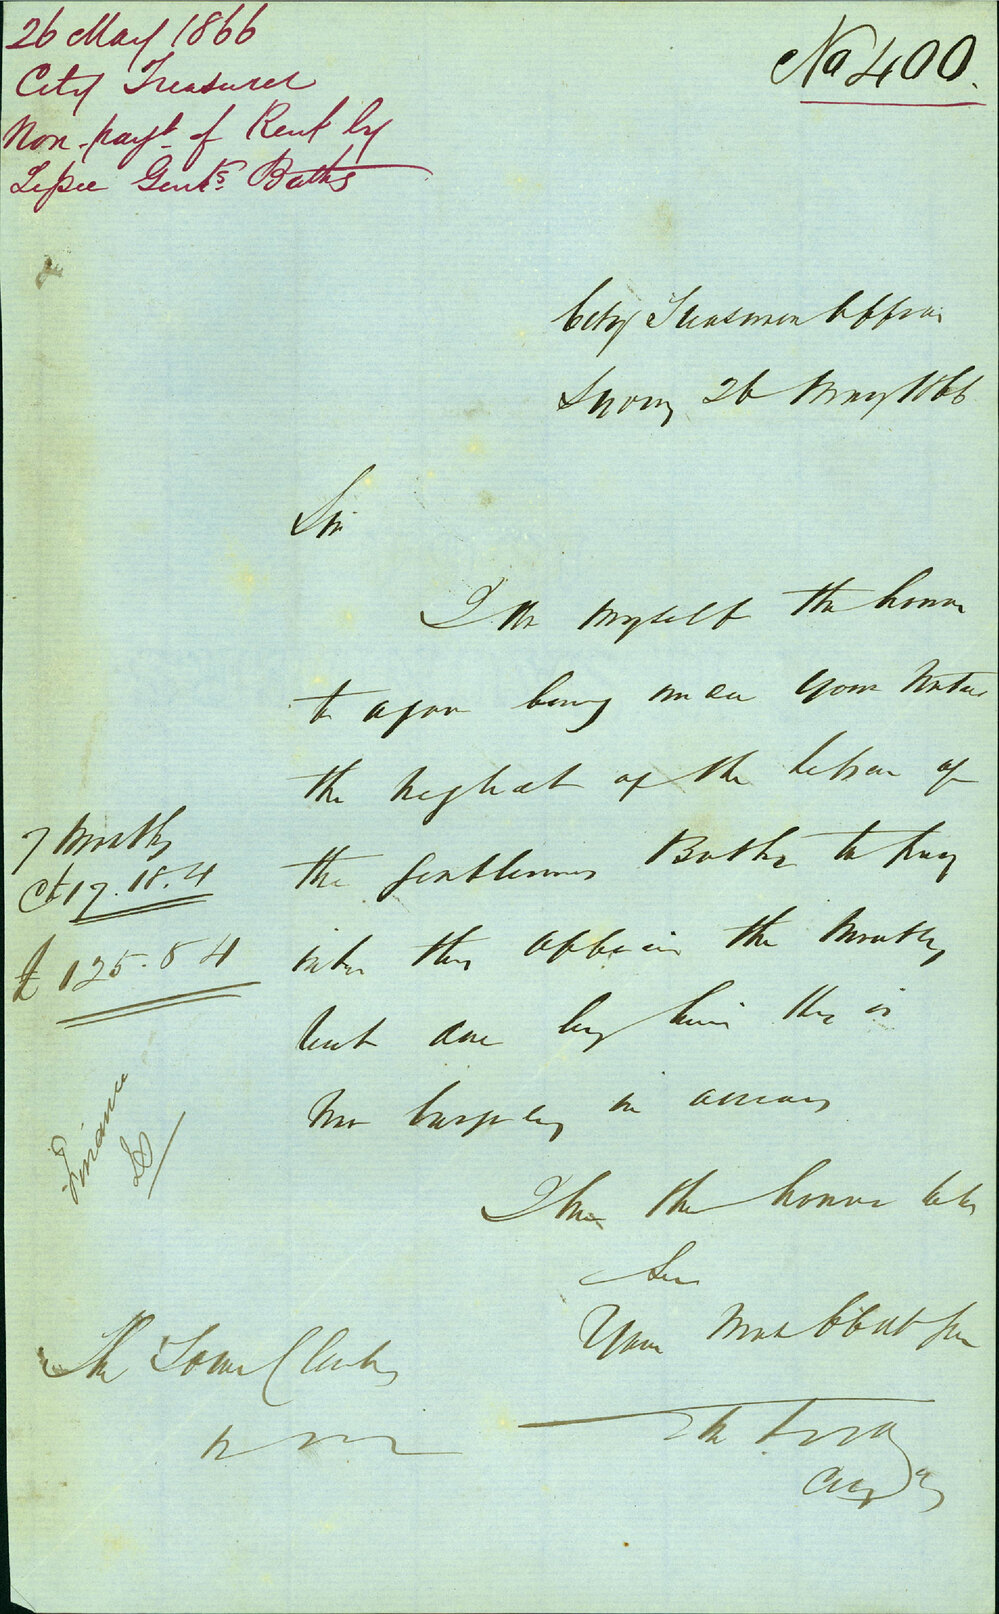 26 May 1866
City Treasurer
Non-payt. of Rent by
Lessee Gents. Baths
No 400.
City Treasurers Office
Sydney 26 May 1866
Sir
I do myself the honor
to again bring under your notice
the neglect of the Lessee of
the Gentlemens Baths to pay
into this Office the monthly
rent due by him he is
now
in arrears
7 Months
@ 17.18.4
£ 125.8 4
Finance
I have the honor to be
Sir
Your Most Obedt Ser
The Town Clerk